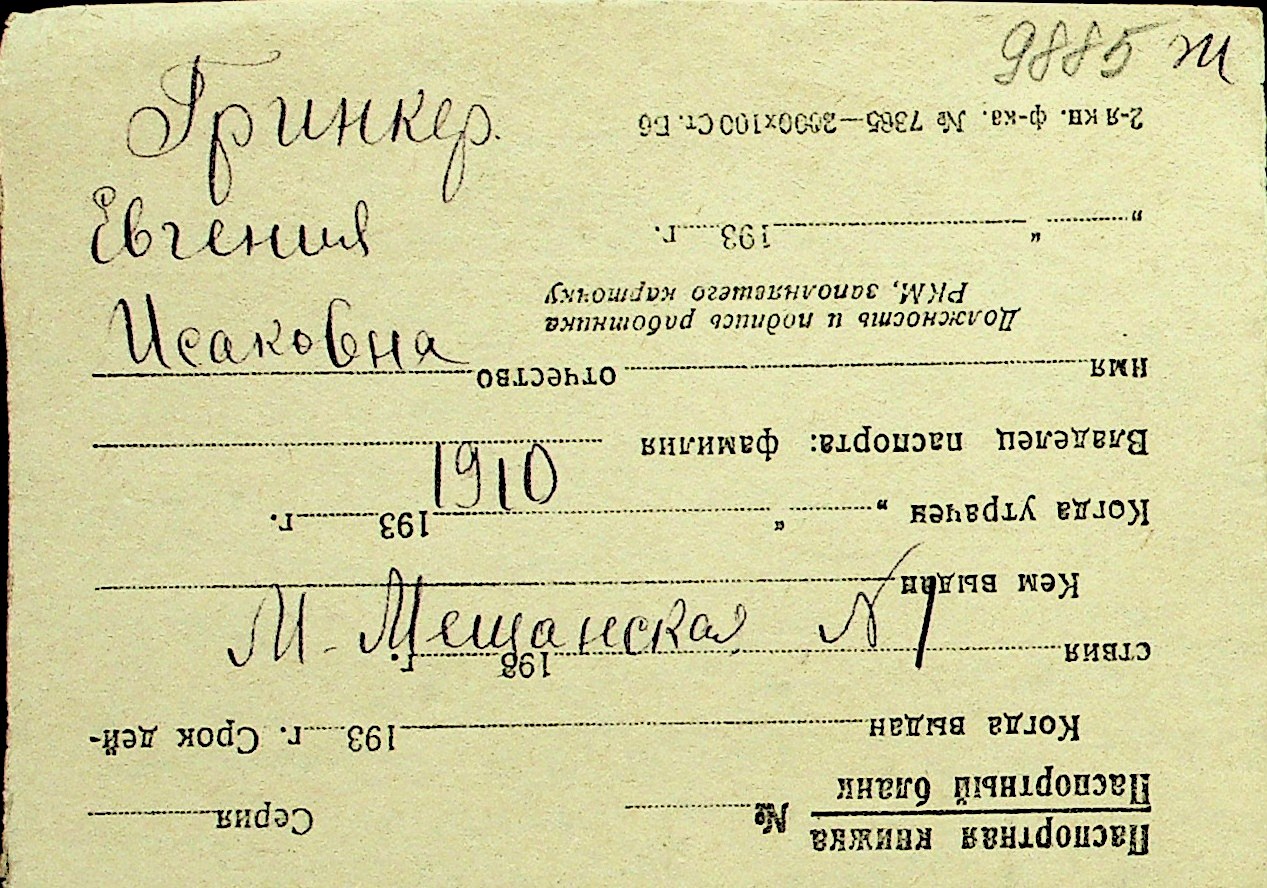 9885 ж
Гринкер.
Евгения
Исаковна
1910
М. Мещанская № 1
Паспортная книжка
Паспортный бланк
№ Серия
Когда выдан 193 г. Срок дей-
ствия 193 г.
Кем выдан
Когда утрачен „ “ 193 г.
Владелец паспорта: фамилия
имя отчество
Должность и подпись работника
РКМ, заполнявшего карточку
„ “ 193 г.
2-я кн. ф-ка. № 7365—2000х100 Ст. Б6